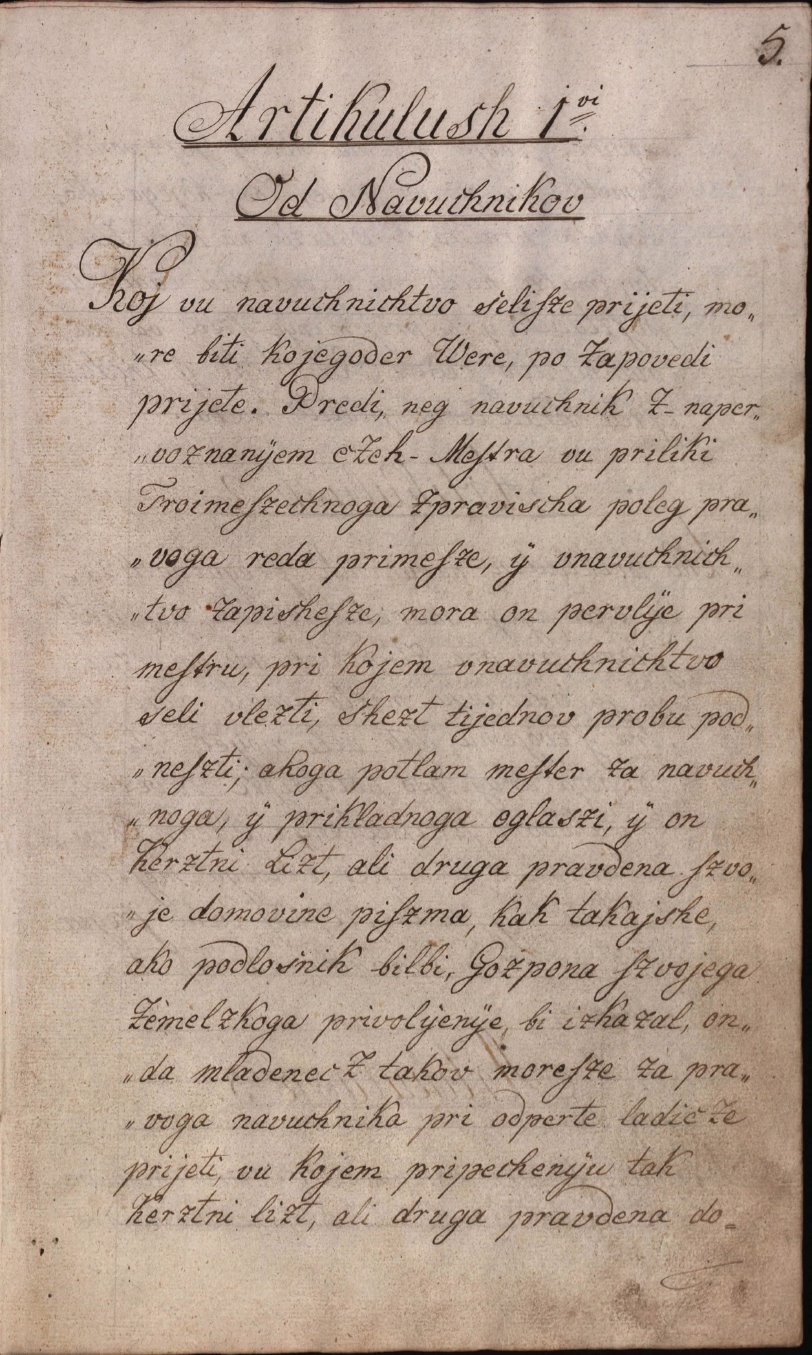 5.
Artikulush 1vi.
Od Navuchnikov
Koj vu navuchnichtvo selisze prijeti, mo„
„re biti kojegoder Were, po zapovedi
prijete. Predi, neg navuchnik z- naper„
„voznanÿem czeh- Mestra vu priliki
Troimeszechnoga zpravischa poleg pra„
„voga reda primesze, ÿ vnavuchnich„
„tvo zapishesze, mora on pervlÿe pri
mestru, pri kojem vnavuchnichtvo
seli vlezti, shezt tijednov probu pod„
„neszti; akoga potlam mester za navuch„
„noga, ÿ prikladnoga oglaszi, ÿ on
kerztni Lizt, ali druga pravdena szvo„
„je domovine piszma, kak takajshe,
ako podlosnik bilbi, Gozpona szvojega
Zemelzkoga privolÿenÿe, bi izkazal, on„
„da mladenecz takov moresze za pra„
„voga navuchnika pri odperte ladicze
prijeti, vu kojem pripechenÿu tak
kerztni lizt, ali druga pravdena do„